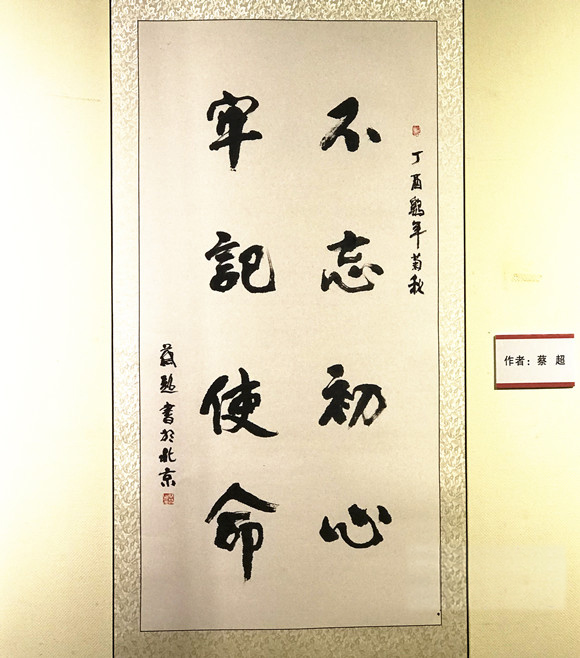 丁酉鷄年菊秋
不忘初心
牢記使命
蔡超書於北京
作者：蔡 超